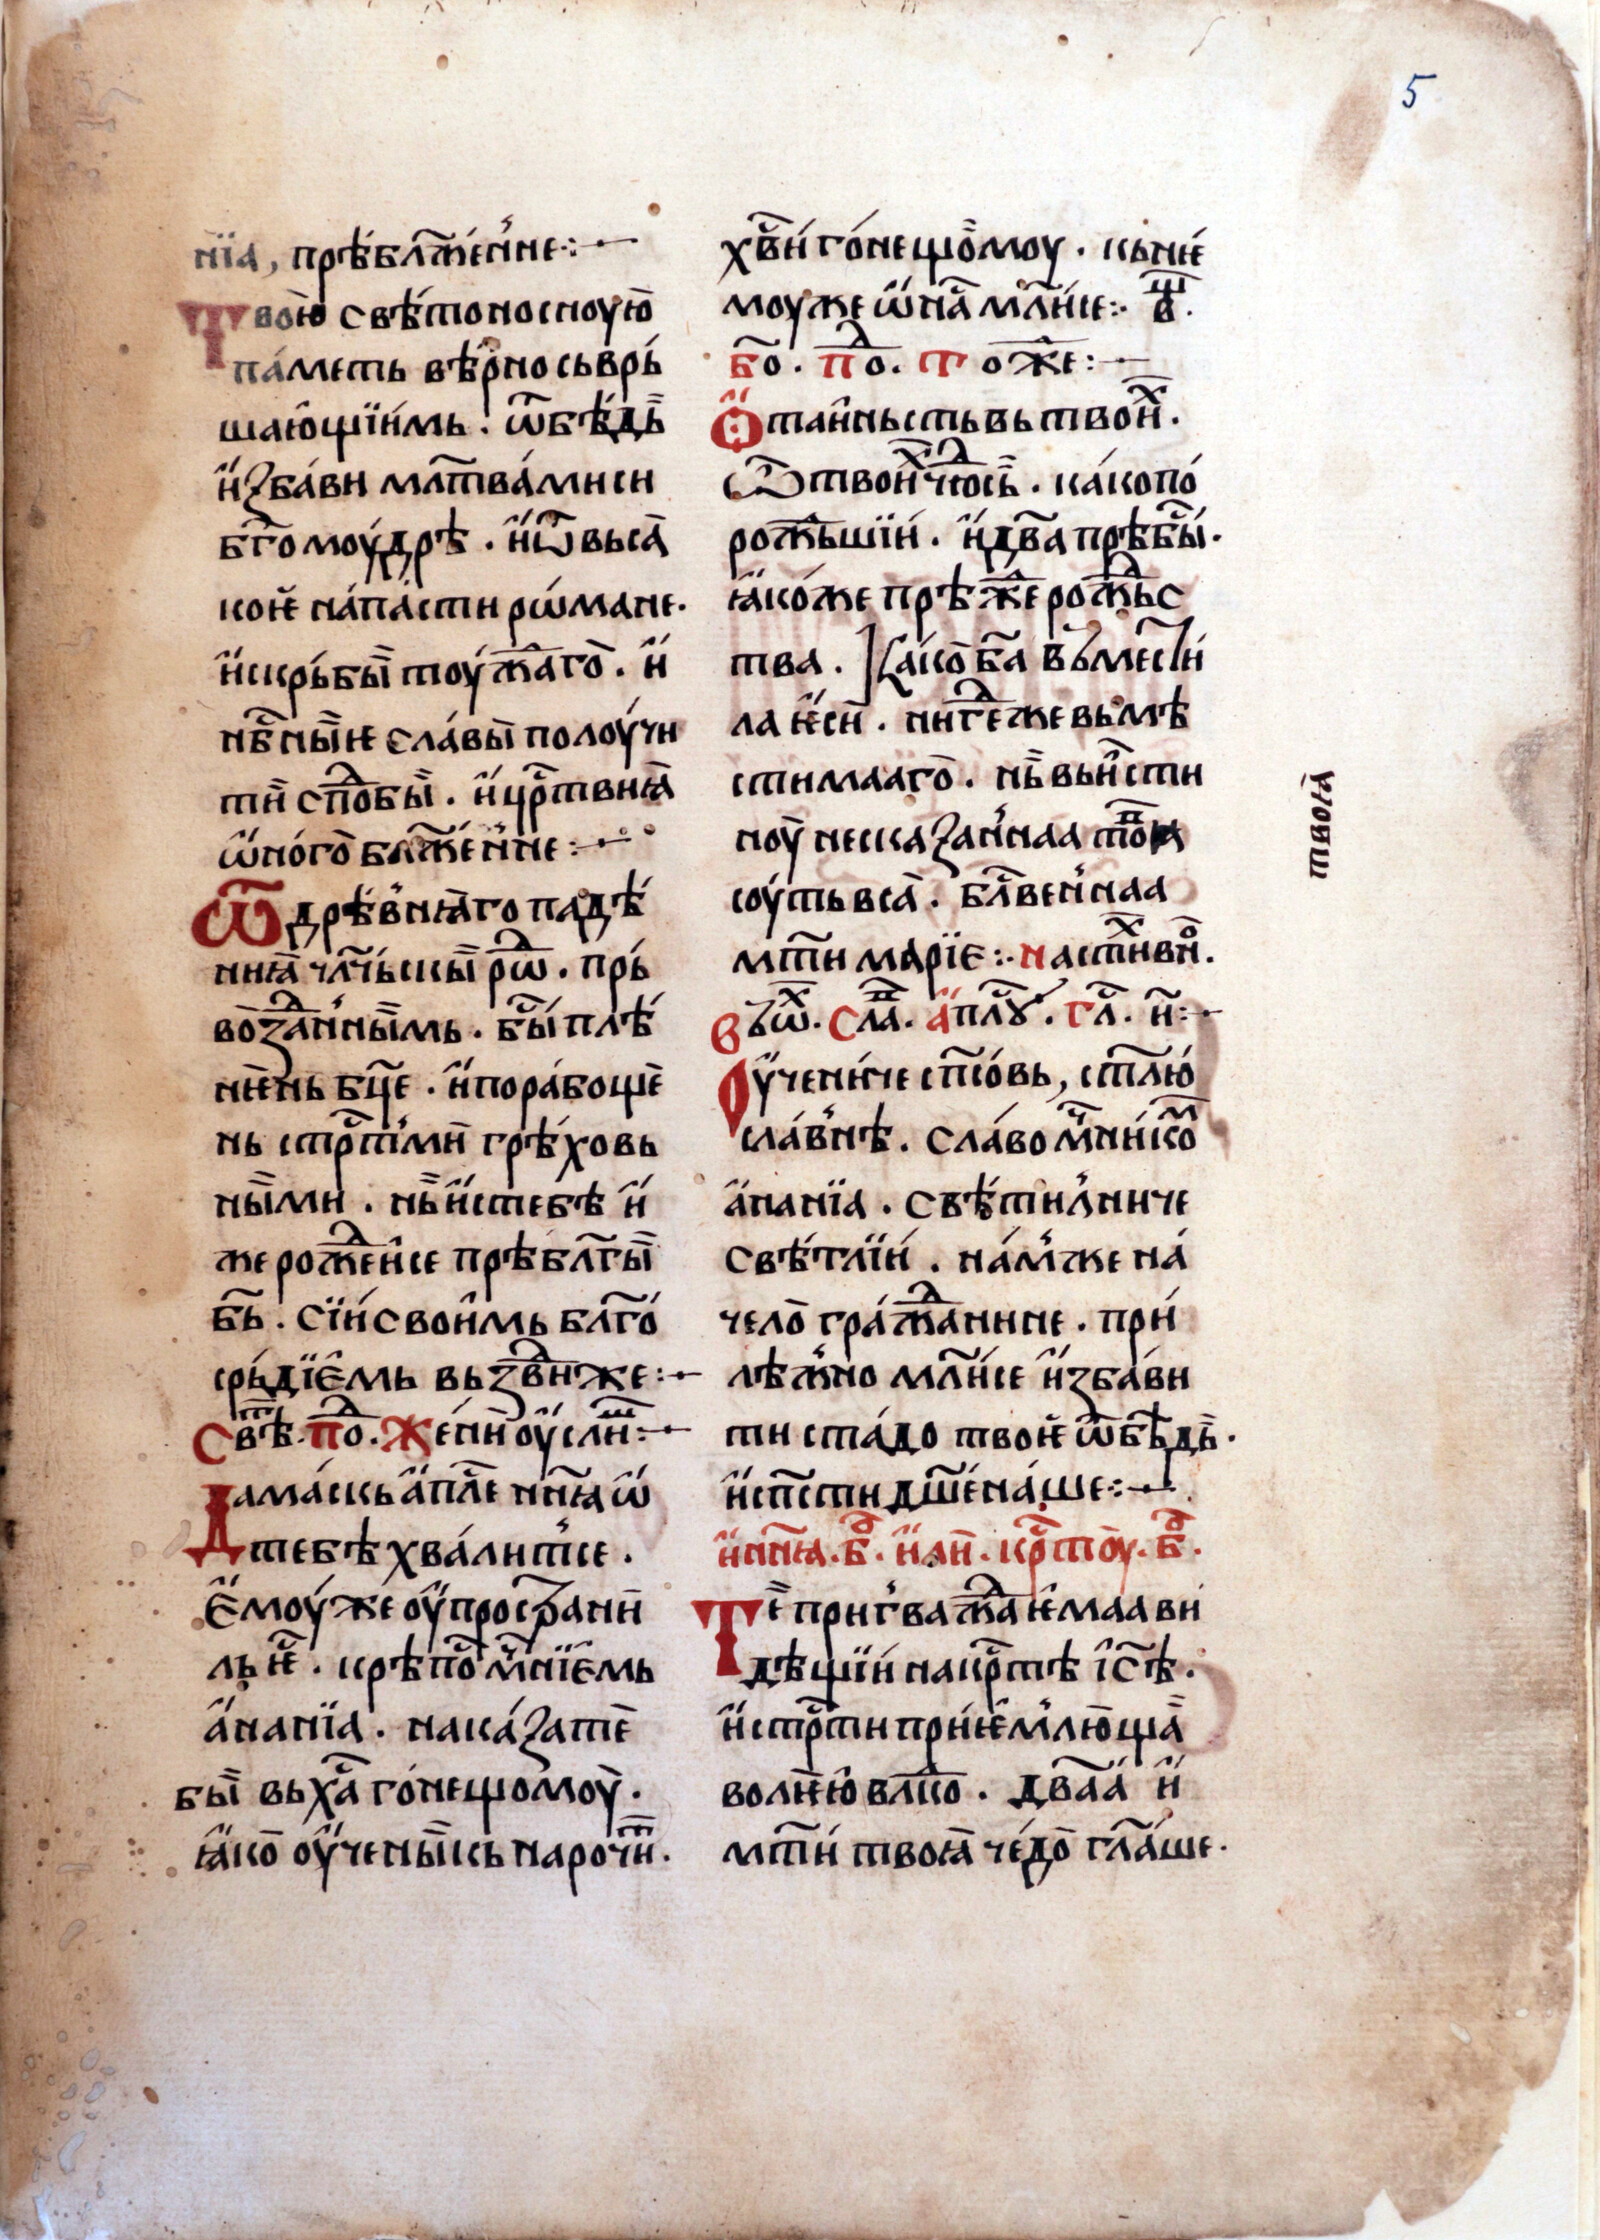 5
нїа, прѣ́бл҃же́н̾не:~
Твою̀ свѣ́тоносноую̀
па́меть вѣ́рно сьврь́
шаю̂щїи́мь. ѿ бѣ́дь̏
и҆зба́ви мл҃тва́ми си
бг҃омоу́дрѣ. и҆ ѿ вьса̀
коѥ̀ на́па́сти рѡ́мане.
и҆ скрь́бы̏ тоу́ж҃аго̀. и҆
нб҃ны̏ѥ сла́вы̏ полоу́чи
ти̏ сп҃обы̏. и҆ цр҃твиꙗ̀
ѡ҆́но́го̀ бл҃же́н̾не:~
Ѿ дрѣ́в̾нꙗ̀го падѣ́
ниꙗ̀ чл҃чь́скы̏ рѡ҃д. прь́
во̀зд҃ан̾ны̏мь. бы҃́ плѣ́
нѥ̀нь бц҃е. и҆ пора́бощѐ
нь стр҃т̾ми̏ грѣ́ховь
ны̏ми. нь̏ и҆с тебѣ и҆́
же рожде҃и̂се прѣбл҃гы̏
бь҃. сїи́ свои̂мь бл҃го́
срь́дїе̂мь вьздв҃и́же:~
Свѣт҃. под҃. Же́ни̏ оу҆слиш҃:~
Дамаскь а҆́пл҃е нн҃ꙗ ѡ҆́
тебѣ хва́лит̾се.
Ѥ҆моу́же оу҆прост҃рани̏
льѥ҃с. крѣ́по҃с мч҃нїе̂мь
а҆́нанїа. нака́зате̏
бы̏ вь ха҃ го́нещомоу̏.
ꙗ҆́ко̀ оу҆чены̏кь нароч҃ит.
хв҃и́ го́нещо̏моу. кь нѥ́
моуже ѡ҆́ на҃с мл҃и́се:· в҃щ.
бо҃. по҃д. Тоже҃:~
Ѻ҆ таи̂ньсть вь твои҃х.
Ѿ твои҃х чюд҃есь̏. ка́ко по́
рождь҃шїи́. и҆́ дв҃а прѣ́бы҃́.
ꙗ҆́ко́же прѣ́жде҃ рождь҃с
тва. Ка́ко̀ б҃а вьмест҃и́
ла ѥ҆́си̏. ниг҃де же вьмѣ
стимааго̀. нь̏ вьи҃́сти
ноу̏ несказан̾наа твоꙗ҃
соу́ть вса̀. бл҃вен̾наа
мт҃и марїе:· на ст҃х в҃но.
Вь ѿ҃х. Слав҃. а҆́пл҃оу. гл҃. и҃:~
Оу҆чени́че сп҃совь, ст҃лю́
сла́в̾нѣ. славо мч҃ни́ком҃
а҆́нанїа. свѣ́тил̾ниче
свѣ́тлїи́. на́м̾же на́
чело̀ гражда҃нине. при́
лѣж̾но мл҃и́се и҆́зба́ви
ти ста́до твоѥ̀ ѿ бѣдь̏.
и҆́ сп҃сти дш҃е на́ше:~
и҆ нн҃ꙗ. б҃о. и҆́ли̏. кр҃тоу. б҃о.
Те̏ при г̾важда҃ѥ̂маа ви́
дѣщїи́ на кр҃тѣ і҆с҃ѣ.
и҆́ стр҃ти при́ѥ̂м̾лю̀ща̏
волнѥ̀ю̂ вл҃ко. дв҃а́а̀ и҆
мт҃и́ твоꙗ̀ че́до̀ гл҃а́ше.
твою̀